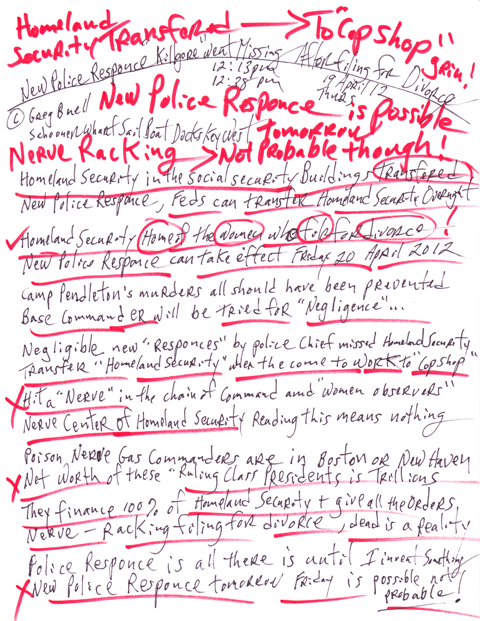 Homeland Security Transferred → To "Cop shop" grin!
New Police Responce Kilgore "Went Missing After filing for Divorce
12:13pm
12:38pm
19 April 12
Thurs
© Greg Buell
Schooner Wharf Sail Boat Docks Key West
New Police Responce is possible Tomorrow
Nerve Racking → Not Probable though!
Homeland Security in the Social security Buildings Transferred
New Police Responce, Feds can transfer Homeland Security Overnight
Homeland Security Home of the Women who file for divorce!
New Police Responce can take effect Friday 20 April 2012
Camp Pendleton's murders all should have been prevented
Base Commander will be tried for "Negligence"...
Negligible new "Responces" by police Chief missed Homeland Security
Transfer "Homeland Security" when the come to work to "Cop shop"
Hit a "Nerve" in the chain of Command amd "women observers"
Nerve Center of Homeland Security Reading this means nothing
Poison Nerve Gas Commanders are in Boston or New Haven
Net Worth of these "Ruling Class Presidents is Trillions
They finance 100% of Homeland Security + give all the Orders
Nerve - Racking filing for divorce, dead is a Reality
Police Responce is all there is until I invent Something
New Police Responce tomorrow Friday is possible not probable!